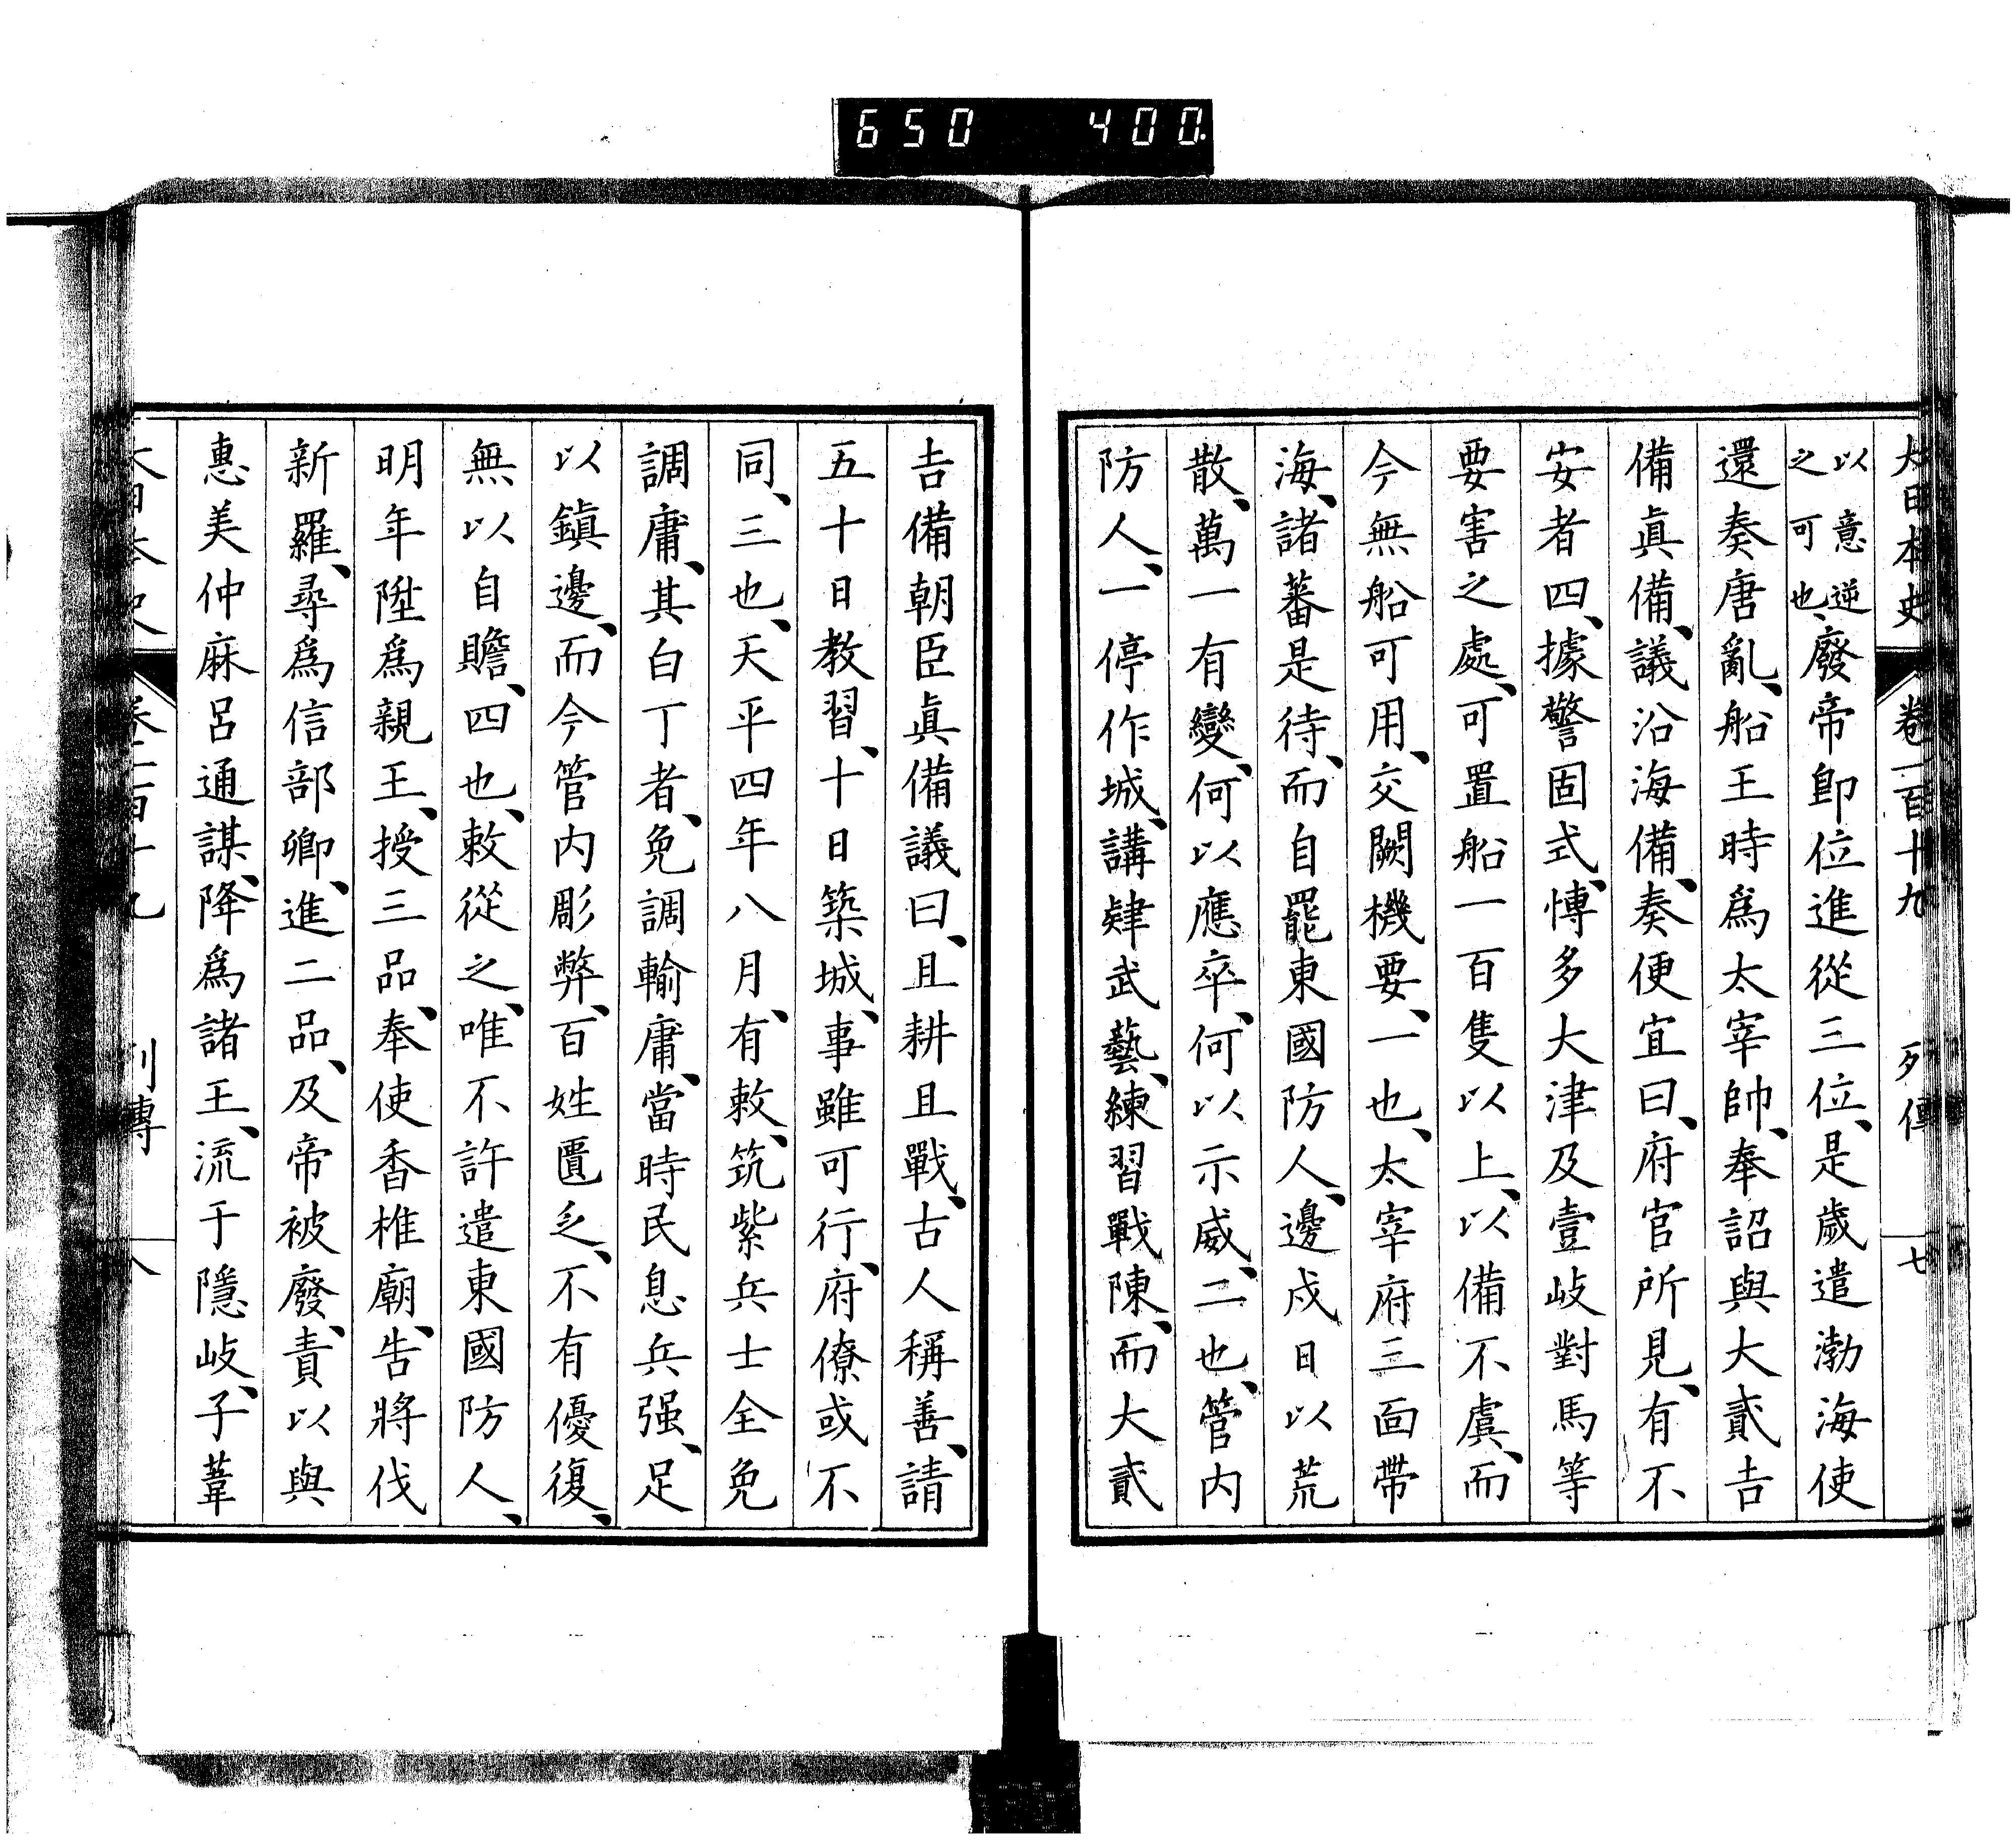 650 400.
大日本史 卷一百十九 列傳 七
以意逆
之可也、廢帝卽位進從三位、是歲遣渤海使
還奏唐亂、船王時爲太宰帥、奉詔與大貳吉
備眞備、議沿海備、奏便宜曰、府官所見、有不
安者四、據警固式、博多大津及壹岐對馬等
要害之處、可置船一百隻以上、以備不虞、而
今無船可用、交闕機要、一也、太宰府三面帶
海、諸蕃是待、而自罷東國防人、邊戍日以荒
散、萬一有變、何以應卒、何以示威、二也、管内
防人、一停作城、講肄武藝、練習戰陳、而大貳
吉備朝臣眞備議曰、且耕且戰、古人稱善、請
五十日教習、十日築城、事雖可行、府僚或不
同、三也、天平四年八月、有敕、筑紫兵士全免
調庸、其白丁者、免調輸庸、當時民息兵强、足
以鎮邊、而今管内彫弊、百姓匱乏、不有優復、
無以自贍、四也、敕從之、唯不許遣東國防人、
明年陞爲親王、授三品、奉使香椎廟、告將伐
新羅、尋爲信部卿、進二品、及帝被廢、責以與
惠美仲麻呂通謀、降爲諸王、流于隱岐、子葦
大日本史 卷一百十九 列傳 八